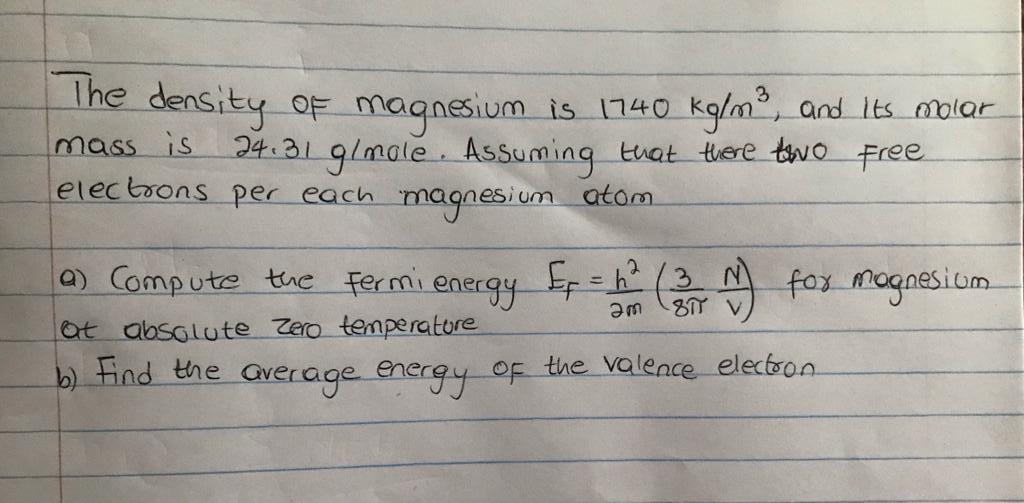 The density OF magnesium is 1740 kg/m³, and Its molar
mass is 24.31 g/mole. Assuming that there two Free
electrons per each magnesium atom
a) Compute the Fermi energy E_F = h²/2m (3/8π N/V) for magnesium
at absolute zero temperature
b) Find the average energy OF the valence electron